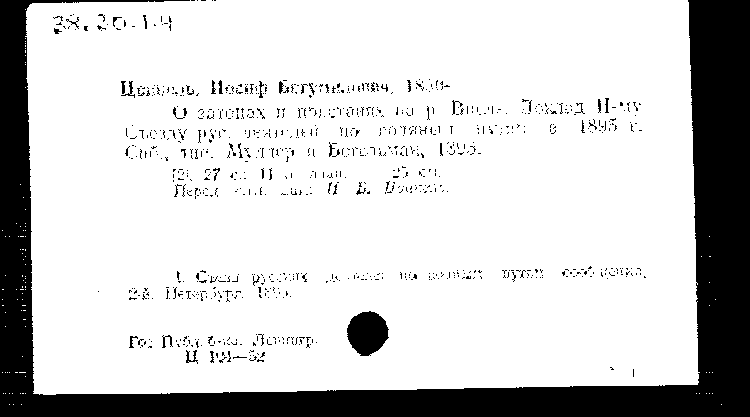 38.20.1.4
Иосиф Богумилович, 18
О затонах и пристанях на р. Висле. Доклад II-му
Съезду рус. деятелей по водяном путям в 1895 г.
Спб., тип. Муллер и Богельман, 1895.
27 с. 11 л. план. 25 см.
Перед загл. авт.: И. Б.
1. Съезд русских деятелей по водным путям сообщения,
2-й. Петербург. 1895.
Гос. Публ. б-ка. Ленингр.
Ц 194—52